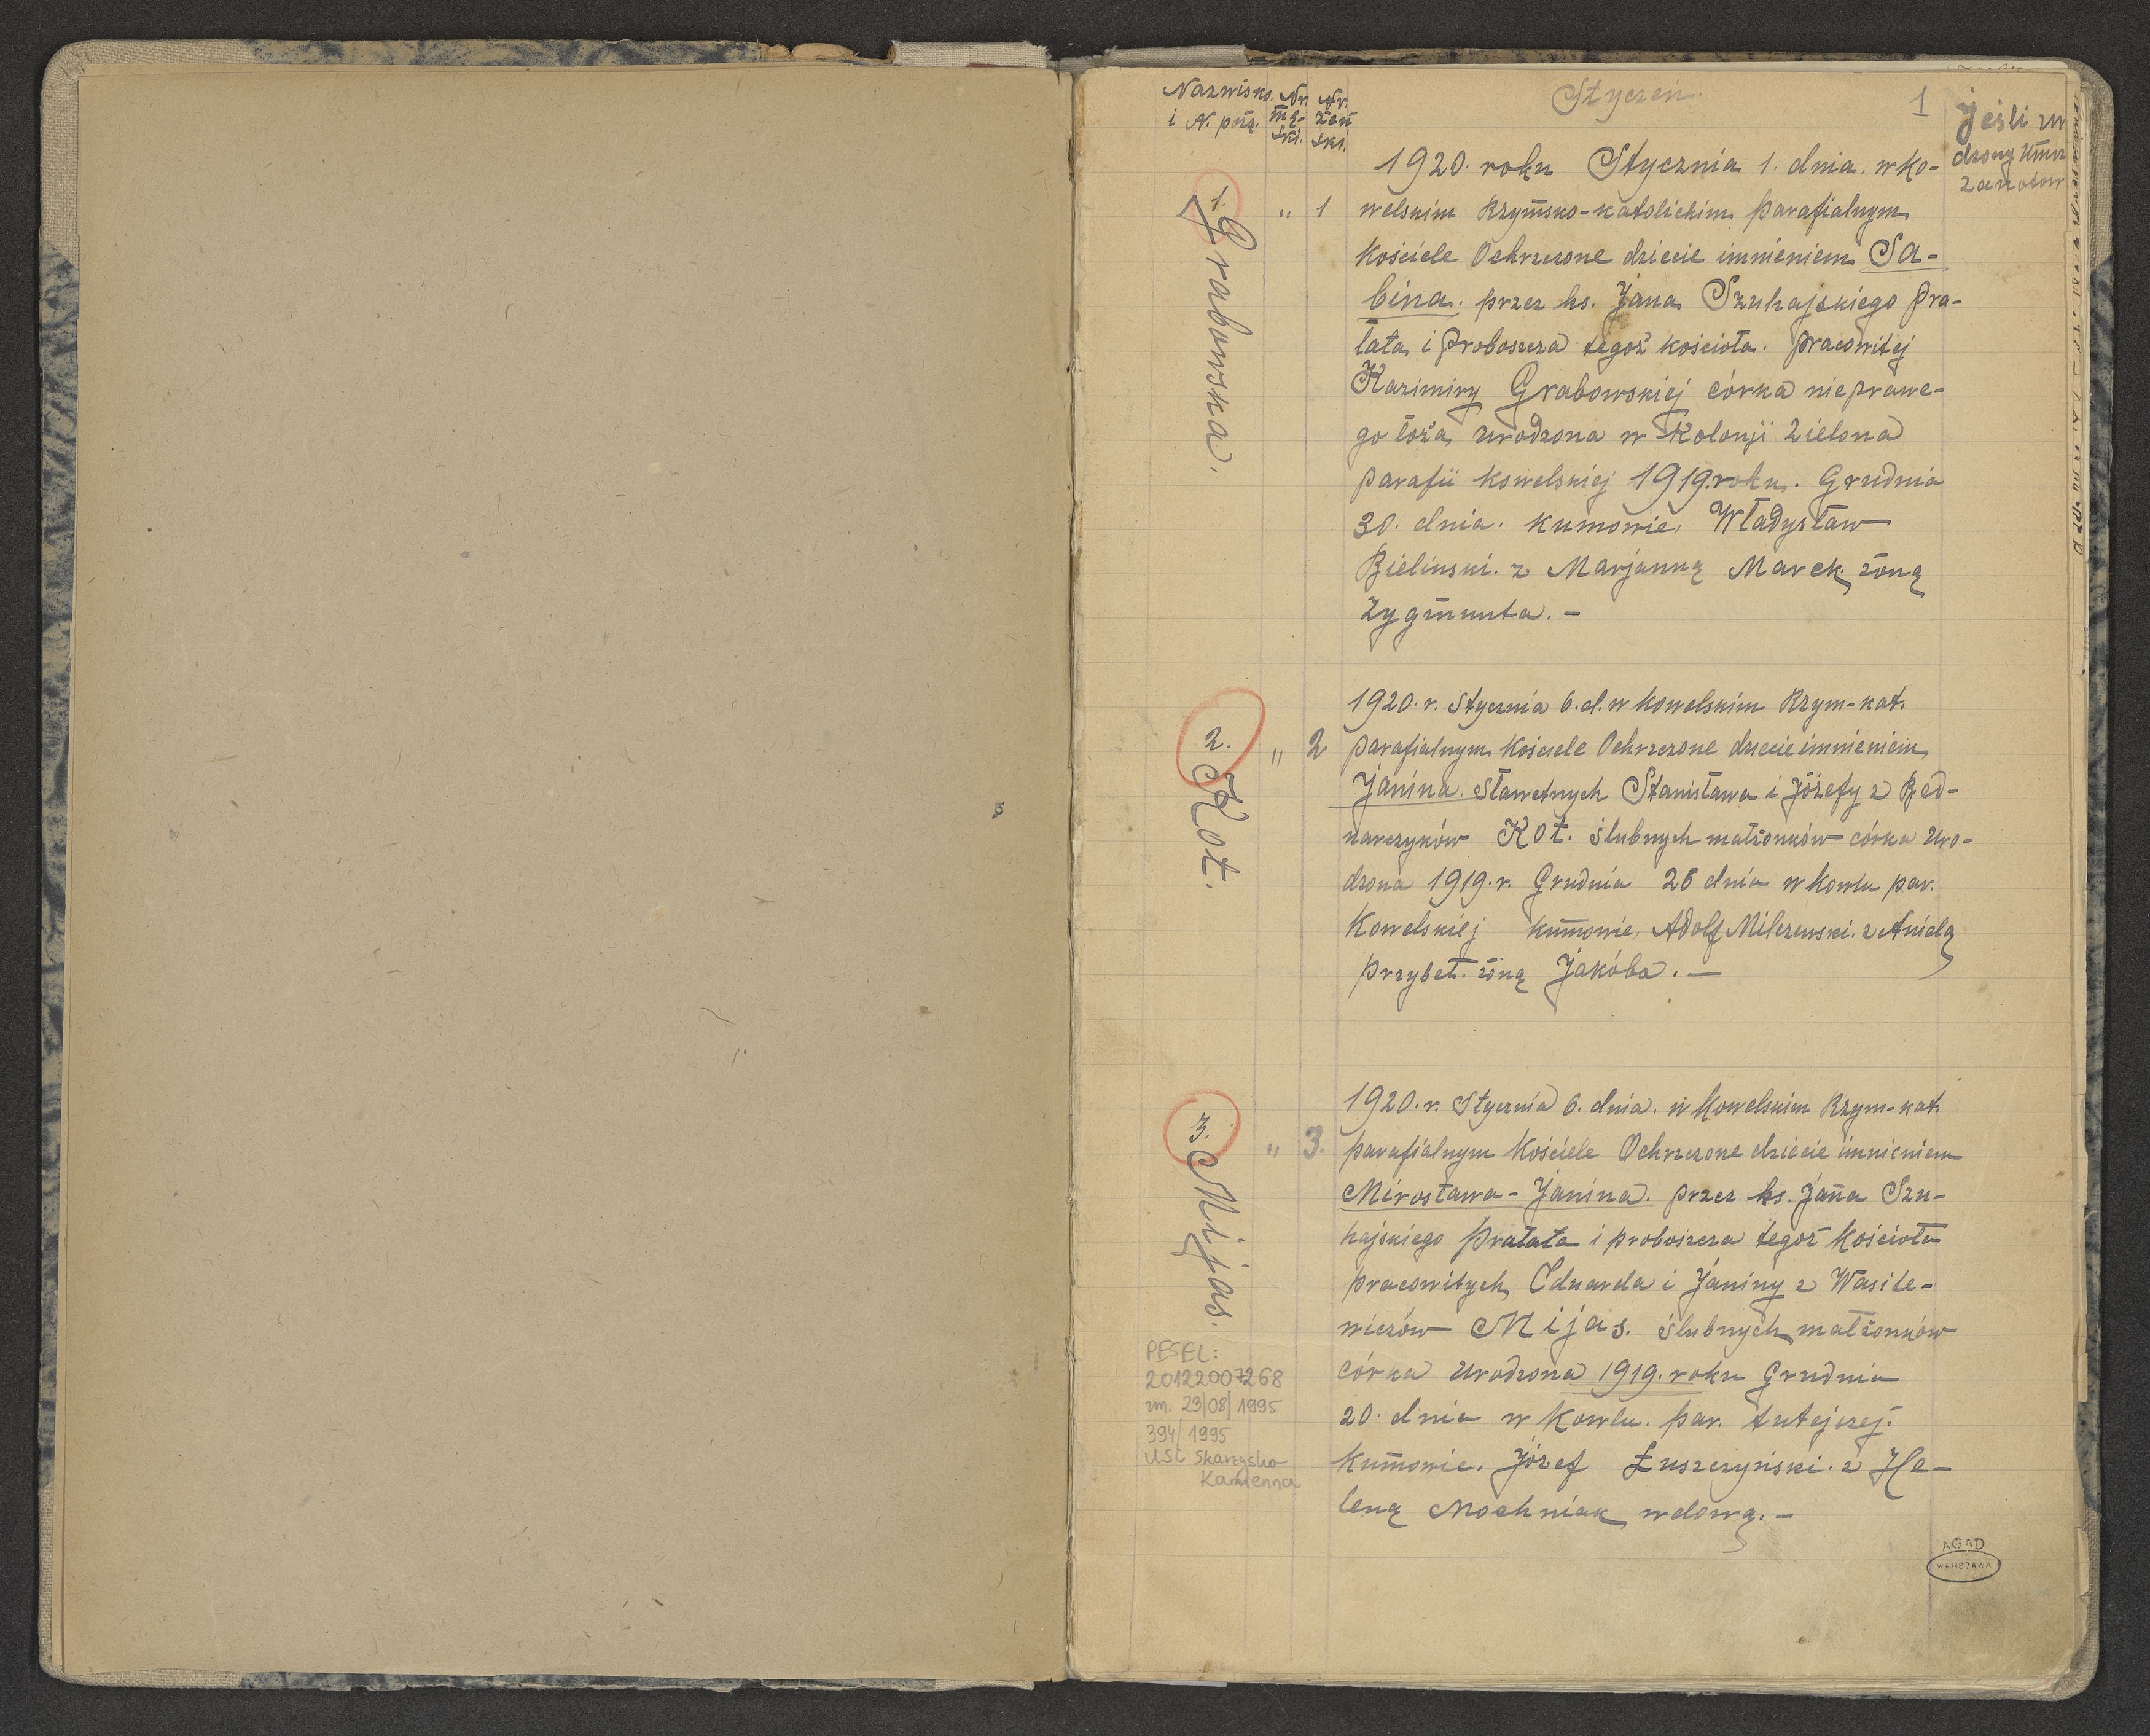 Nazwisko Nr. Nr.
i N. porz. mę- żeń
ski. ski.
Styczeń.
1
jeśli ur
dzony umrz
zanotow
1. Grabowska.
" 1
1920. roku Stycznia 1. dnia. w Ko-
welskim Rzymsko-katolickim parafialnym
kościele Ochrzczone dziecie imnieniem Sa-
bina. przez ks. Jana Szuhajskiego pra-
łata i proboszcza tegoż kościoła. pracowitej
Kazimiry Grabowskiej córka niepra­we-
go łoża urodzona w Kolonji Zielona
parafii kowelskiej 1919. roku. Grudnia
30. dnia. kumowie, Władysław
Bielinski. z Marjanną Marek żoną
Zygmunta. –
2. Kot.
" 2
1920. r. Stycznia 6. d. w kowelskim Rzym-kat.
parafialnym kościele Ochrzczone dziecie imnieniem
Janina. Sławetnych Stanisława i Józefy z Bed-
narczyków Kot. ślubnych małżonków córka uro-
dzona 1919. r. Grudnia 26 dnia w Kowlu par.
Kowelskiej kumowie, Adolf Milczewski. z Anielą
przybet. żoną Jakóba. —
3. Mijas.
" 3.
1920. r. Stycznia 6. dnia. w Kowelskim Rzym-kat.
parafialnym Kościele Ochrzczone dziecie imnieniem
Mirosława-Janina. przez ks. Jana Szu-
hajskiego Prałata i proboszcza tegoż kościoła
pracowitych Eduarda i Janiny z Wasile-
wiczów Mijas. ślubnych małżonków
córka urodzona 1919. roku Grudnia
20. dnia w Kowlu. par. tutejszej.
kumowie. Józef Łuszczyński. z He-
leną Mochniak wdową. –
PESEL:
20122007268
zm. 29/08/1995
394/1995
USC Skarżysko-
Kamienna
AGAD
WARSZAWA